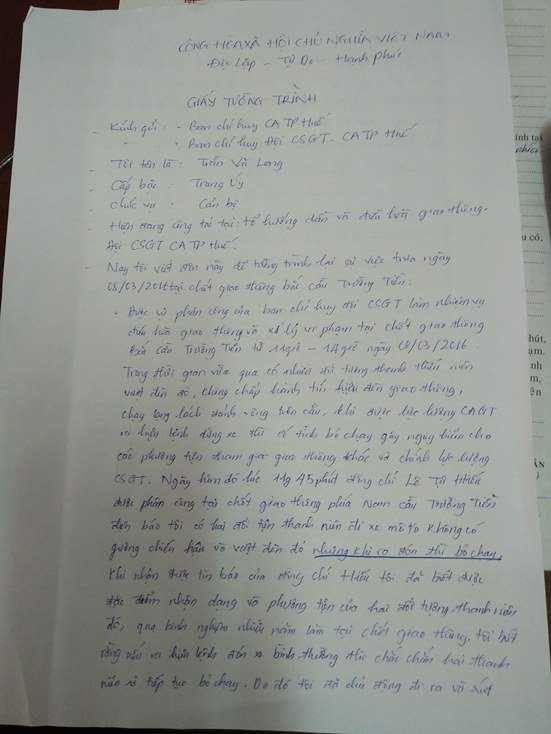 CỘNG HÒA XÃ HỘI CHỦ NGHĨA VIỆT NAM
Độc Lập - Tự Do - Hạnh Phúc
GIẤY TƯỜNG TRÌNH
- Kính gửi: - Ban chỉ huy CA TP Huế
- Ban chỉ huy Đội CSGT - CA TP Huế
- Tôi tên là: Trần Vũ Long
- Cấp bậc: Trung Úy
- Chức vụ: Cán bộ
- Hiện đang công tác tại: tổ hướng dẫn và điều hòa giao thông.
Đội CSGT CA TP Huế.
- Nay tôi viết đơn này để tường trình lại sự việc trưa ngày
08/03/2016 tại chốt giao thông bắc cầu Trường Tiền:
- Được sự phân công của ban chỉ huy đội CSGT làm nhiệm vụ
điều hòa giao thông và xử lý vi phạm tại chốt giao thông
Bắc cầu Trường Tiền từ 11giờ - 14giờ ngày 08/03/2016.
Trong thời gian vừa qua có nhiều đối tượng thanh thiếu niên
vượt đèn đỏ, không chấp hành tín hiệu đèn giao thông,
chạy lạng lách đánh võng trên cầu, khi được lực lượng CSGT
ra hiệu lệnh dừng xe thì cố tình bỏ chạy gây nguy hiểm cho
các phương tiện tham gia giao thông khác và chính lực lượng
CSGT. Ngày hôm đó lúc 11g45phút đồng chí Lê Tự Hiếu
được phân công tại chốt giao thông phía Nam cầu Trường Tiền
điện báo tôi có hai đối tượng thanh niên đi xe mô tô không có
gương chiếu hậu và vượt đèn đỏ nhưng khi ra đón thì bỏ chạy.
Khi nhận được tin báo của đồng chí Hiếu tôi đã biết được
đặc điểm nhận dạng và phương tiện của hai đối tượng thanh niên
đó, qua kinh nghiệm nhiều năm làm tại chốt giao thông, tôi biết
rằng nếu ra hiệu lệnh đón xe bình thường thì chắc chắn hai thanh
niên sẽ tiếp tục bỏ chạy. Do đó tôi đã chủ động đi ra và